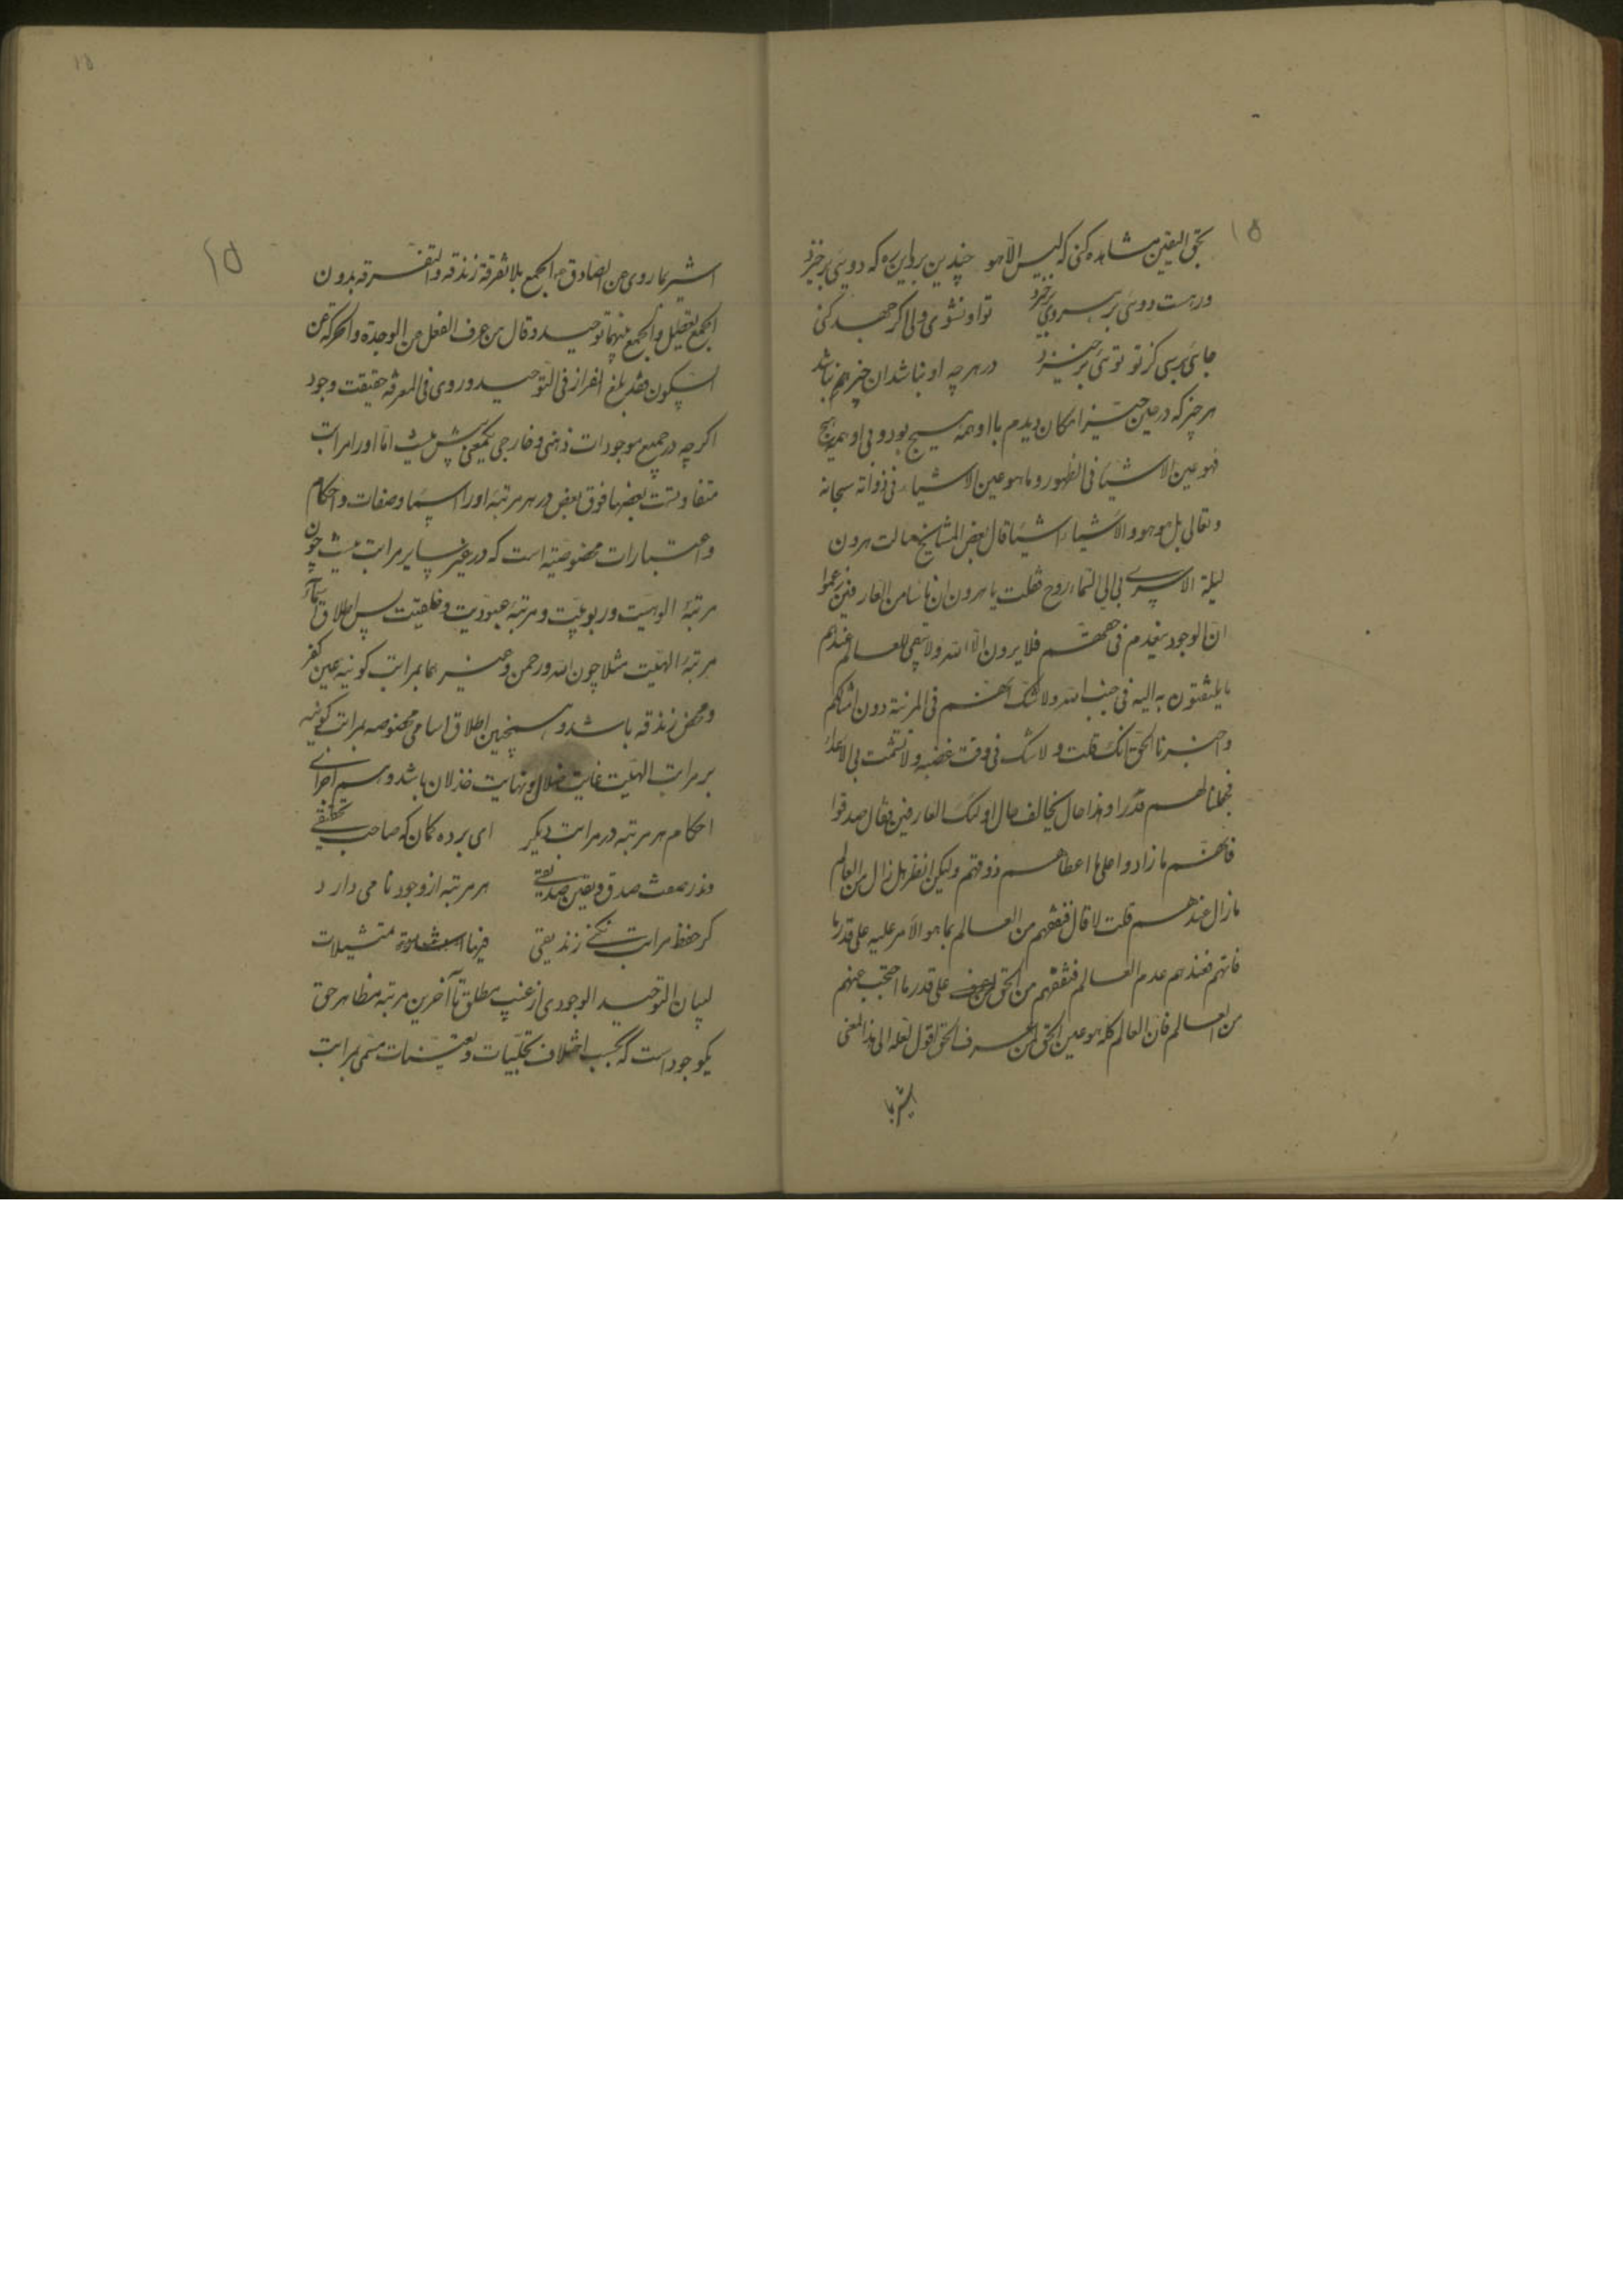 ۱۵
بحق الیقین مشاهده کنی که لیس الا هو چندین برو این ره که دوئی برخیزد
ورهست دوئی برهروی برخیزد تو او نشوی ولی اگر جهد کنی
جائی برسی کز تو توئی برخیزد در هر چه او نباشد ان چیز هم نباشد
هر چیز که در عین حیز امکان دیدم با او همه هیچ بود و بی او همه هیچ
فهو عین الاشیا فی الظهور وما هو عین الاشیاء فی ذواته سبحانه
وتعالی بل هو هو والاشیاء اشیا قال بعض المشایخ هرون
لیلة الاسری بی الی السماء روح فقلت یا هرون ان ناسا من العارفین زعموا
ان الوجود ینعدم فی حقهم فلا یرون الا الله ولا یبقی للعالم عندهم
ما یلتفتون به الیه فی جنب الله ولا شک انهم فی المرتبة دون امثالکم
واخبرنا الحق انک قلت ولاشک فی وقت غضبه ولا تشمت بی الاعداء
فجعلنا لهم قدرا وهذا حال یخالف حال اولئک العارفین فقال صدقوا
فانهم ما زادوا علی ما اعطاهم ذوقهم ولیکن انظر هل زال من العالم
ما زال عندهم قلت لا قال فنقصهم من العالم بما هو الامر علیه علی قدر ما
فاتهم فعندهم عدم العالم فنقصهم من الحق علی قدر ما احتجب عنهم
من العالم فان العالم کله هو عین الحق لمن عرف الحق اقول لعله الی هذا المعنی
اشیر بما
۱۵
۱۵
اشیر بما روی عن الصادق ع الجمع بلا تفرقة زندقه والتفرقه بدون
الجمع تعطیل والجمع بینهما توحید وقال من عرف الفصل من الوحدة والحرکة من
السکون فقد بلغ القرار فی التوحید وروی فی المعرفه حقیقت وجود
اگرچه در جمیع موجودات ذهنی و خارجی یکمعنی بیش نیست اما او را مراتب
متفاوتست بعضها فوق بعض ودر هر مرتبه او را اسما وصفات واحکام
واعتبارات مخصوصه است که در غیر سایر مراتب نیست چون
مرتبه الوهیت وربوبیت ومرتبه عبودیت وخلقیت پس اطلاق اسماء
مرتبه الهیت مثلا چون الله ورحمن وغیرهما بمراتب کونیه عین کفر
ومحض زندقه باشد وهمچنین اطلاق اسامی مخصوصه بمراتب کونیه
بر مراتب الهیت غایت ضلال ونهایت خذلان باشد وهم اجرای
احکام هر مرتبه در مراتب دیگر ای برده گمان که صاحب تحقیقی
وندر صفت صدق ویقین صدیقی هر مرتبه از وجود نامی دارد
گر حفظ مراتب نکنی زندیقی فیرنا استعاره تمثیلات
لبیان التوحید الوجودی از غیب مطلق تا آخرین مرتبه مظاهر حق
یکوجود است که بحسب اختلاف تجلیات وتعینات مسمی بمراتب